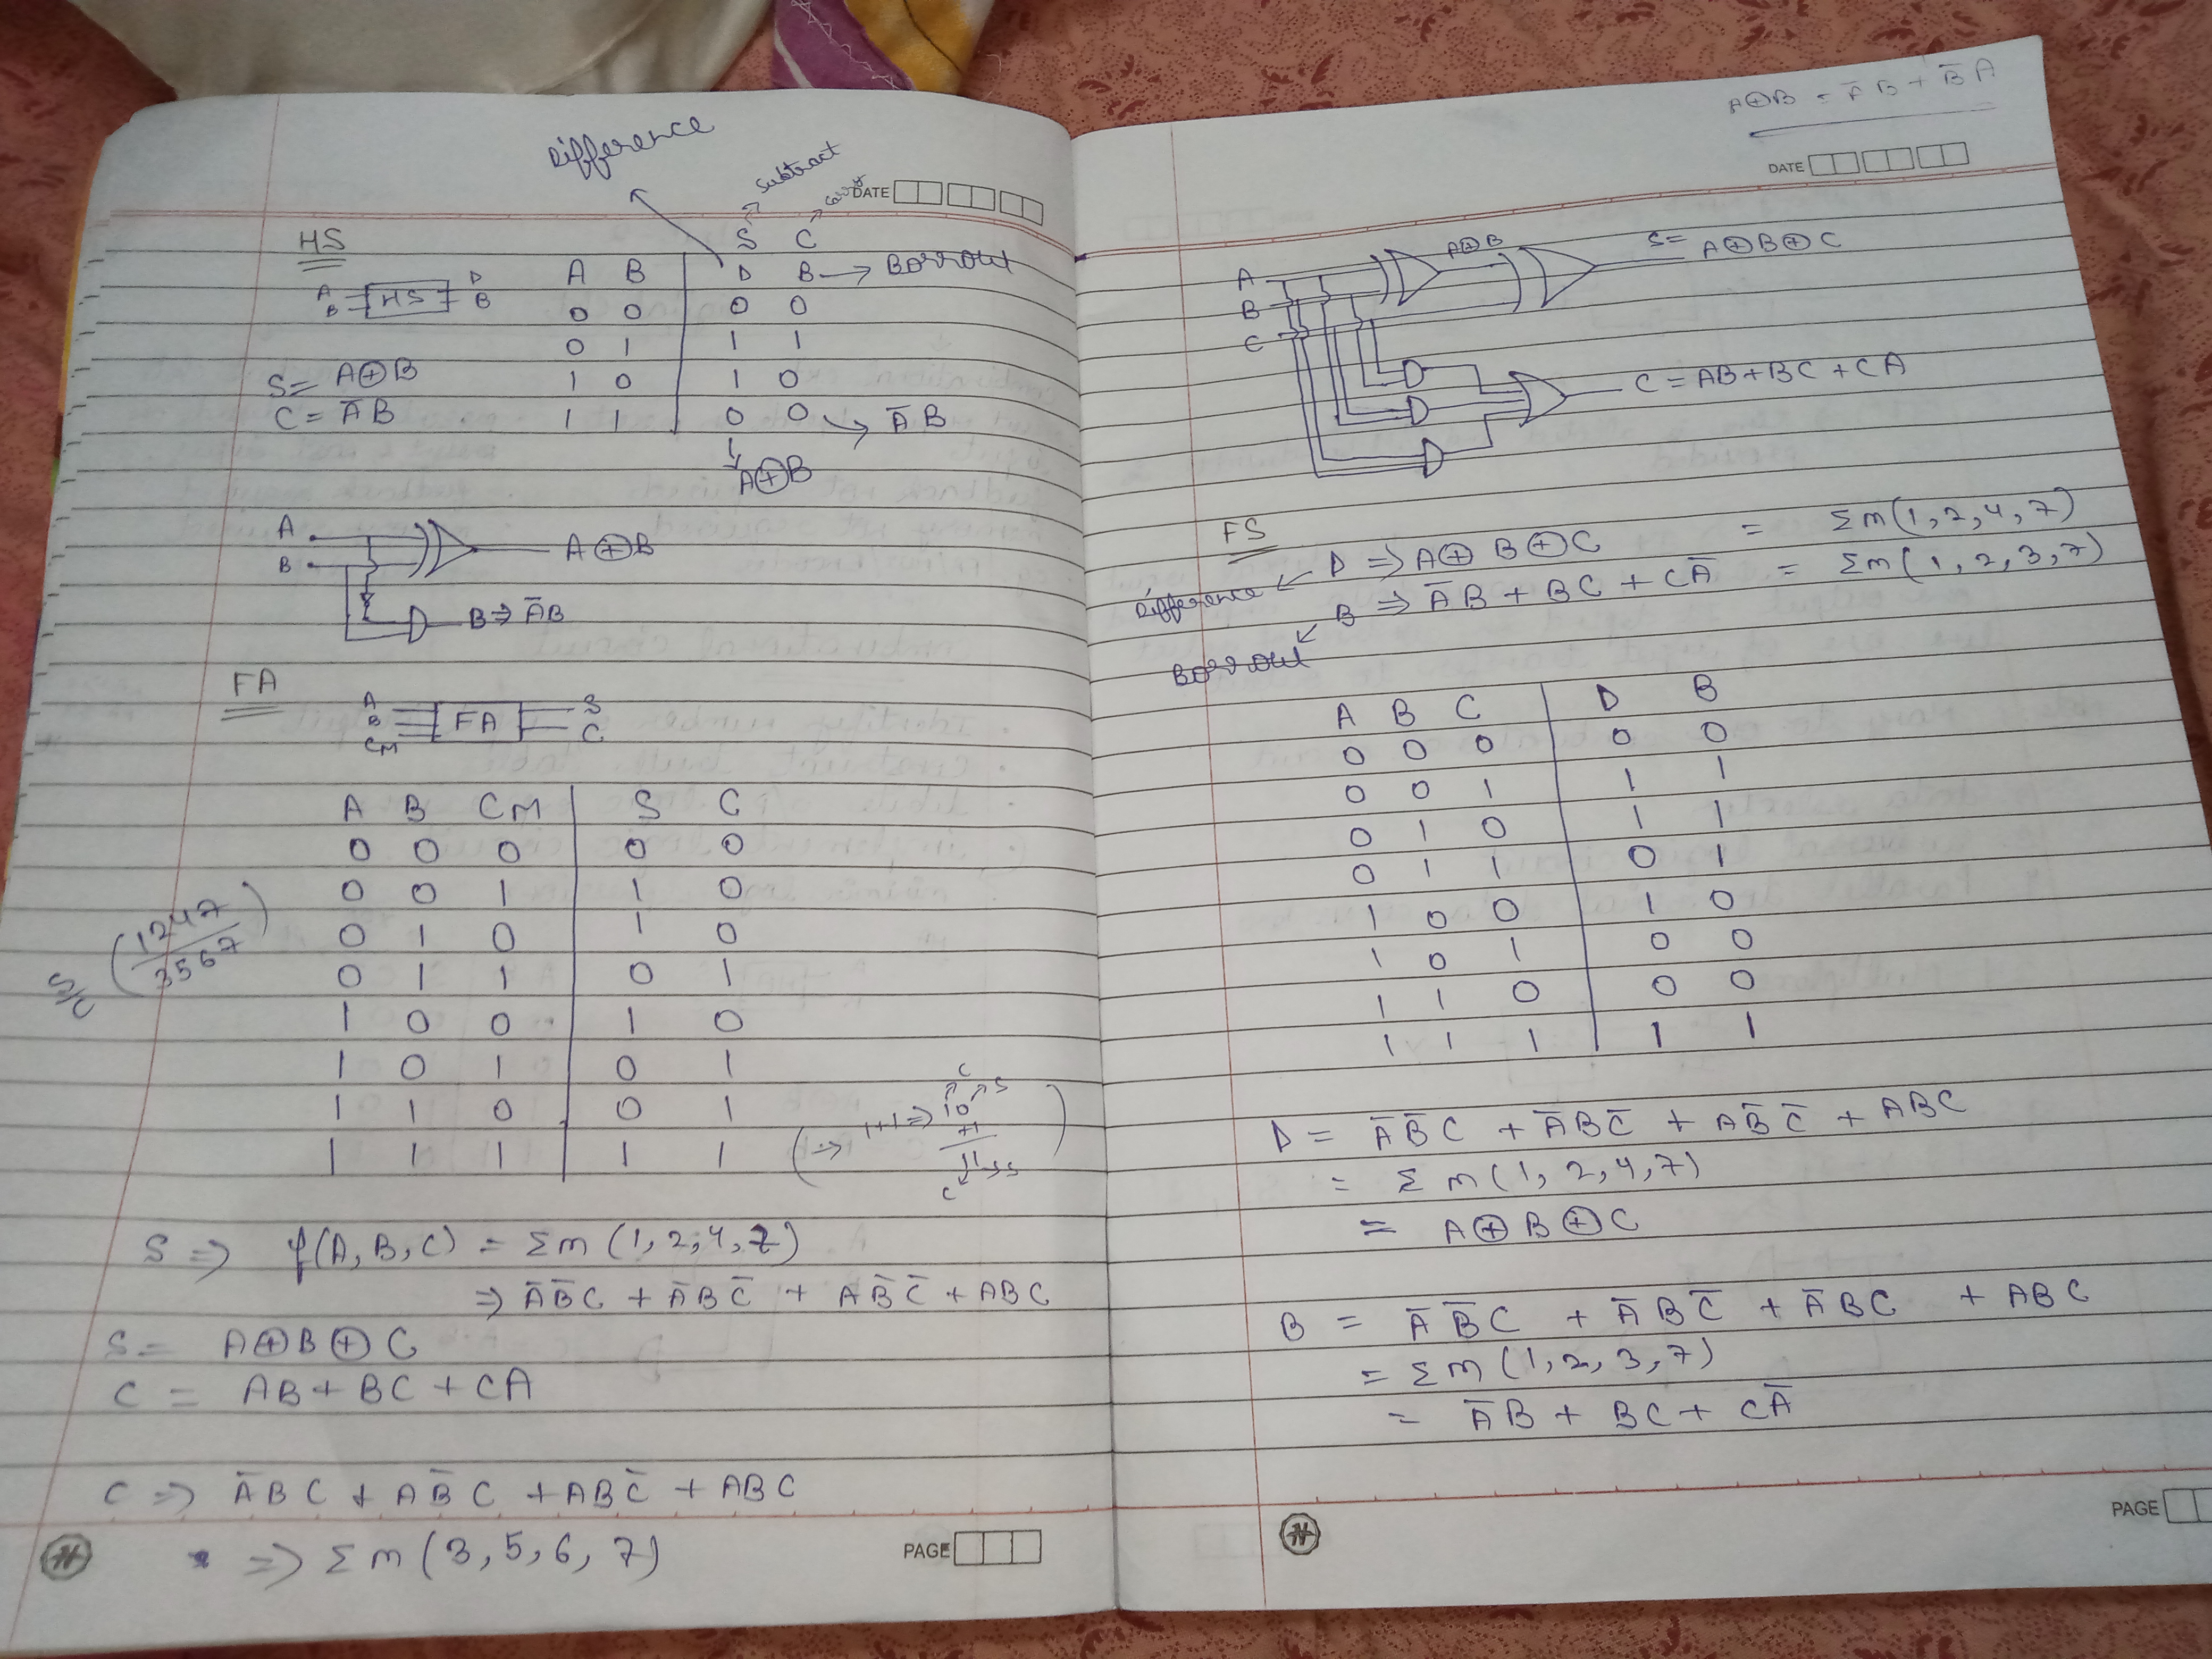 Difference
Subtract
DATE
HS
S C
A B D B → Borrow
A B HS D B
0 0 0 0
0 1 1 1
S = A⊕B 1 0 1 0
C = A̅B 1 1 0 0 → A̅B
A⊕B
A
B
A⊕B
B ⇒ A̅B
FA
A B CM FA S C
A B CM S C
0 0 0 0 0
0 0 1 1 0
0 1 0 1 0
0 1 1 0 1
1 0 0 1 0
1 0 1 0 1
1 1 0 0 1
1 1 1 1 1
S/C (1247/3567)
(⇒ 1+1 ⇒ 10 +1 11 → S)
C S
C
S ⇒ f(A, B, C) = Σm (1, 2, 4, 7)
⇒ A̅B̅C + A̅BC̅ + AB̅C̅ + ABC
S = A⊕B⊕C
C = AB + BC + CA
C ⇒ A̅BC + AB̅C + ABC̅ + ABC
⇒ Σm (3, 5, 6, 7)
PAGE
A⊕B = A̅B + B̅A
DATE
A
B
C
A⊕B
S = A⊕B⊕C
C = AB + BC + CA
FS
Difference ← D ⇒ A⊕B⊕C = Σm(1, 2, 4, 7)
Borrow ← B ⇒ A̅B + BC + CA̅ = Σm(1, 2, 3, 7)
A B C D B
0 0 0 0 0
0 0 1 1 1
0 1 0 1 1
0 1 1 0 1
1 0 0 1 0
1 0 1 0 0
1 1 0 0 0
1 1 1 1 1
D = A̅B̅C + A̅BC̅ + AB̅C̅ + ABC
= Σm (1, 2, 4, 7)
= A⊕B⊕C
B = A̅B̅C + A̅BC̅ + A̅BC + ABC
= Σm (1, 2, 3, 7)
= A̅B + BC + CA̅
PAGE